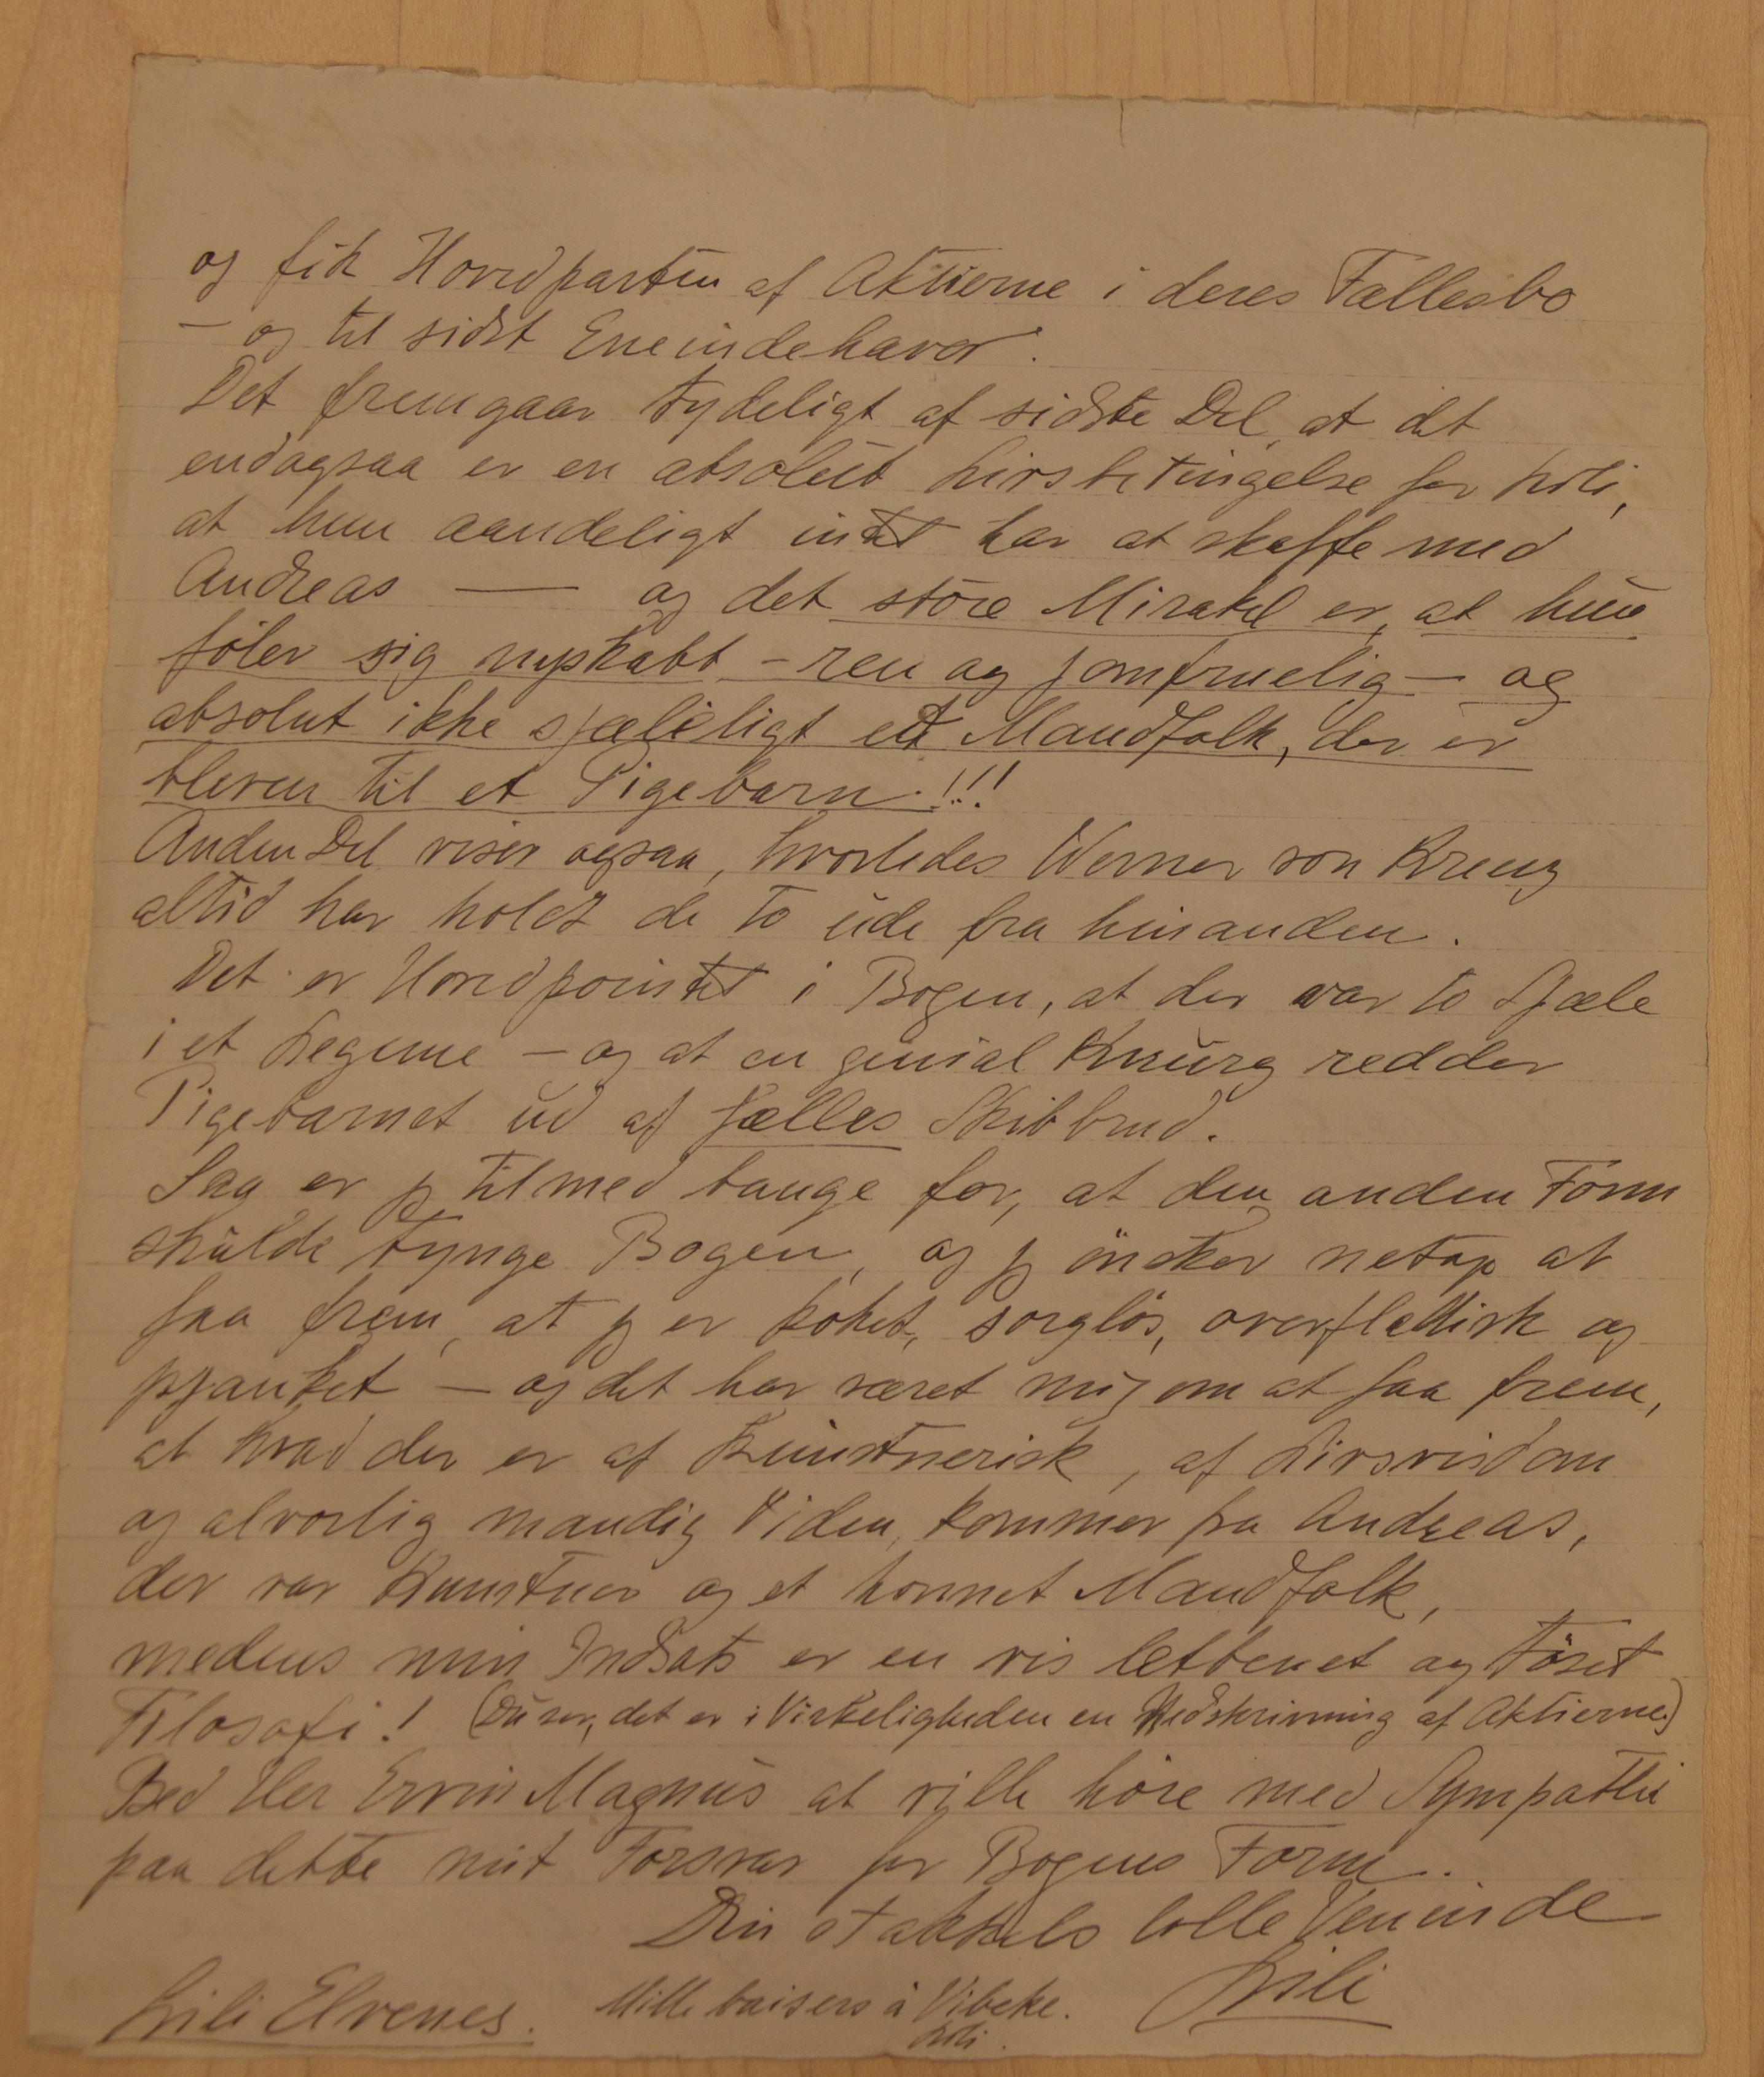 og fik Hovedparten af Aktierne i deres Fællesbo
— og til sidst Eneindehaver.
Det fremgaar tydeligt af sidste Del, at det
endogsaa er en absolut Livsbetingelse for Lili,
at hun aandeligt intet har at skaffe med
Andreas — og det store Mirakel er, at hun
föler sig nyskabt – ren og jomfruelig – og
absolut ikke sjæleligt et Mandfolk, der er
bleven til et Pigebarn!!!
Anden Del viser ogsaa, hvorledes Werner von Kreuz
altid har holdt de to ude fra hinanden.
Det er Hovedpointet i Bogen, at der var to Sjæle
i et Legeme – og at en genial Kirurg redder
Pigebarnet ud af fælles Skibbrud.
Saa er jeg tilmed bange for, at den anden Form
skulde tynge Bogen, og jeg önsker netop at
faa frem, at jeg er koket, sorglös, overfladisk og
pjanket – og det har været mig om at faa frem,
at hvad der er af Kunstnerisk, af Livsvisdom
og alvorlig mandig Viden, kommer fra Andreas,
der var Kunstner og et honnet Mandfolk,
medens min Indsats er en vis letbenet og töset
Filosofi! (Du ser, det er i Virkeligheden en Nedskrivning af Aktierne.)
Bed Her Ervin Magnus at ville höre med Sympathi
paa dette mit Forsvar for Bogens Form.
Din stakkels lille Veninde
Lili
Lili Elvenes. Mille baisers à Vibeke.
Lili.